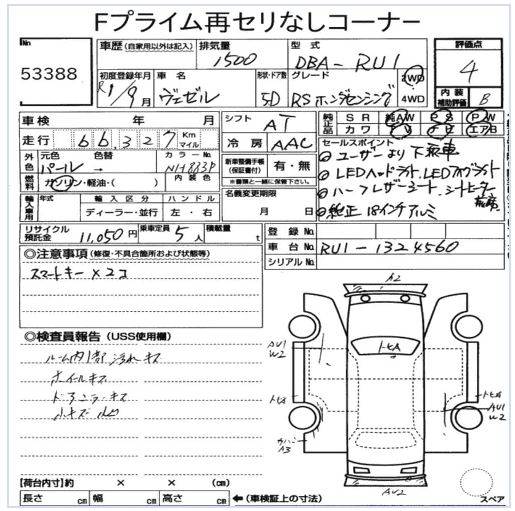 Fプライム再セリなしコーナー
No
53388
車歴 (自家用以外は記入)
排気量
1500
型式
DBA-RU1
評価点
4
初度登録年月
R1/9月
車名
ヴェゼル
形状・ドア数
5D
グレード
RSホンダセンシング
2WD
4WD
内装
補助評価
B
車検 年 月
シフト
AT
純正品
SR 純AW PS PW
カワ エアB
走行 66,327 Km
マイル
冷房
AAC
セールスポイント
ユーザーより下取車
LEDヘッドライト、LEDフォグライト
ハーフレザーシート、シートヒーター
純正18インチアルミ
外色
元色
パール
色替
カラーNo.
NH883P
新車整備手帳
(保証書付)
有・無
※書類と一緒に保管下さい。
燃料
ガソリン・軽油・( )
名義変更期限
月 日
輸入車用
年式
輸入区分
ハンドル
ディーラー・並行
左・右
リサイクル
預託金
11,050円
乗車定員
5人
積載量
t
登録No.
車台No.
RU1-1324560
シリアルNo.
◎注意事項 (修復・不具合箇所および状態等)
スマートキー×2コ
◎検査員報告 (USS使用欄)
ルーム内1部汚れキズ
ホイールキズ
ドアミラーキズ
小キズ凹
A2
トビA
AU1
W2
トビA
AU1
W2
A3
AU2
【荷台内寸】約 × × (cm)
長さ cm 幅 cm 高さ cm
←(車検証上の寸法)
スペア